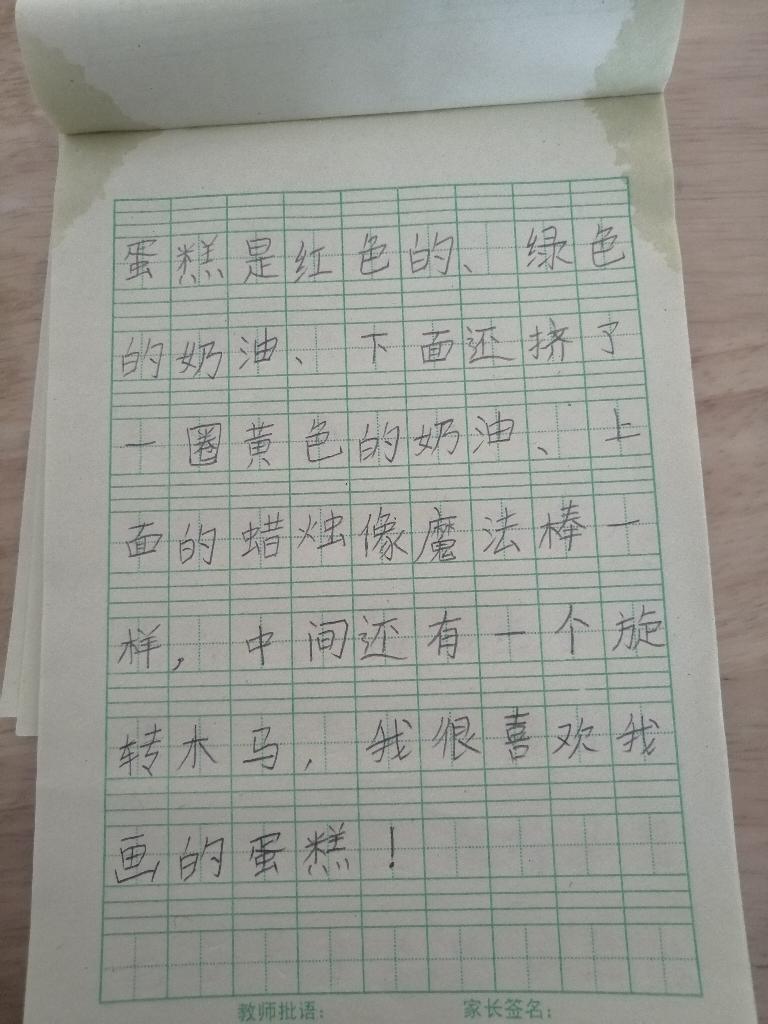 蛋糕是红色的、绿色
的奶油、下面还挤了
一圈黄色的奶油、上
面的蜡烛像魔法棒一
样，中间还有一个旋
转木马，我很喜欢我
画的蛋糕！
教师批语： 家长签名：